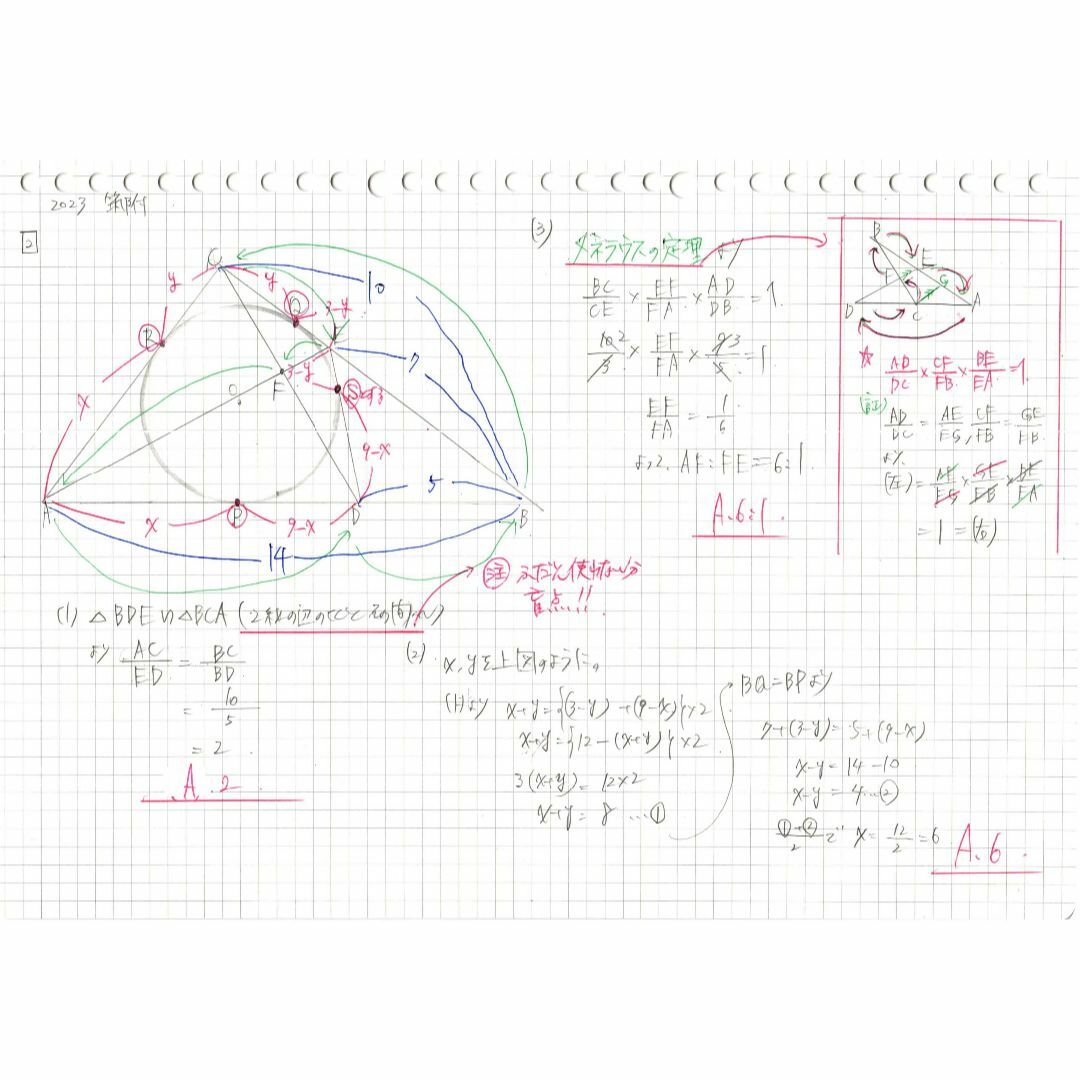 2023 筑附
2
C
y
y
10
Q
3-y
R
E
7
F
3-y
S
O
x
9-x
5
A
x
P
9-x
D
B
14
注 ふだん使わないが
盲点!!
(1) △BDE∽△BCA (2組の辺の比と
より AC/ED = BC/BD
= 10/5
= 2
A. 2
(2) x, yを上図のように。
(1)より x+y={(3-y)+(9-x)}×2
x+y={12-(x+y)}×2
3(x+y)=12×2
x+y=8 …①
BQ=BPより
7+(3-y)=5+(9-x)
x-y=14-10
x-y=4…②
(①+②)/2で x=12/2=6
A. 6.
(3)
メネラウスの定理より
BC/CE×EF/FA×AD/DB=1.
10/3×EF/FA×9/5=1
EF/FA=1/6
よって、AF:FE=6:1.
A. 6:1.
B
E
F
G
D
C
A
☆ AD/DC×CF/FB×BE/EA=1.
(証)
AD/DC=AE/EG, CF/FB=GE/EB
より
(左)=AE/EG×GE/EB×BE/EA
=1=(右)